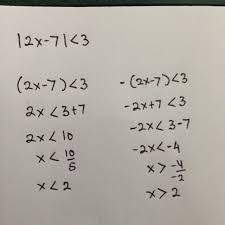 |2x-7|<3
(2x-7)<3
2x<3+7
2x<10
x<10/5
x<2
-(2x-7)<3
-2x+7<3
-2x<3-7
-2x<-4
x>-4/-2
x>2